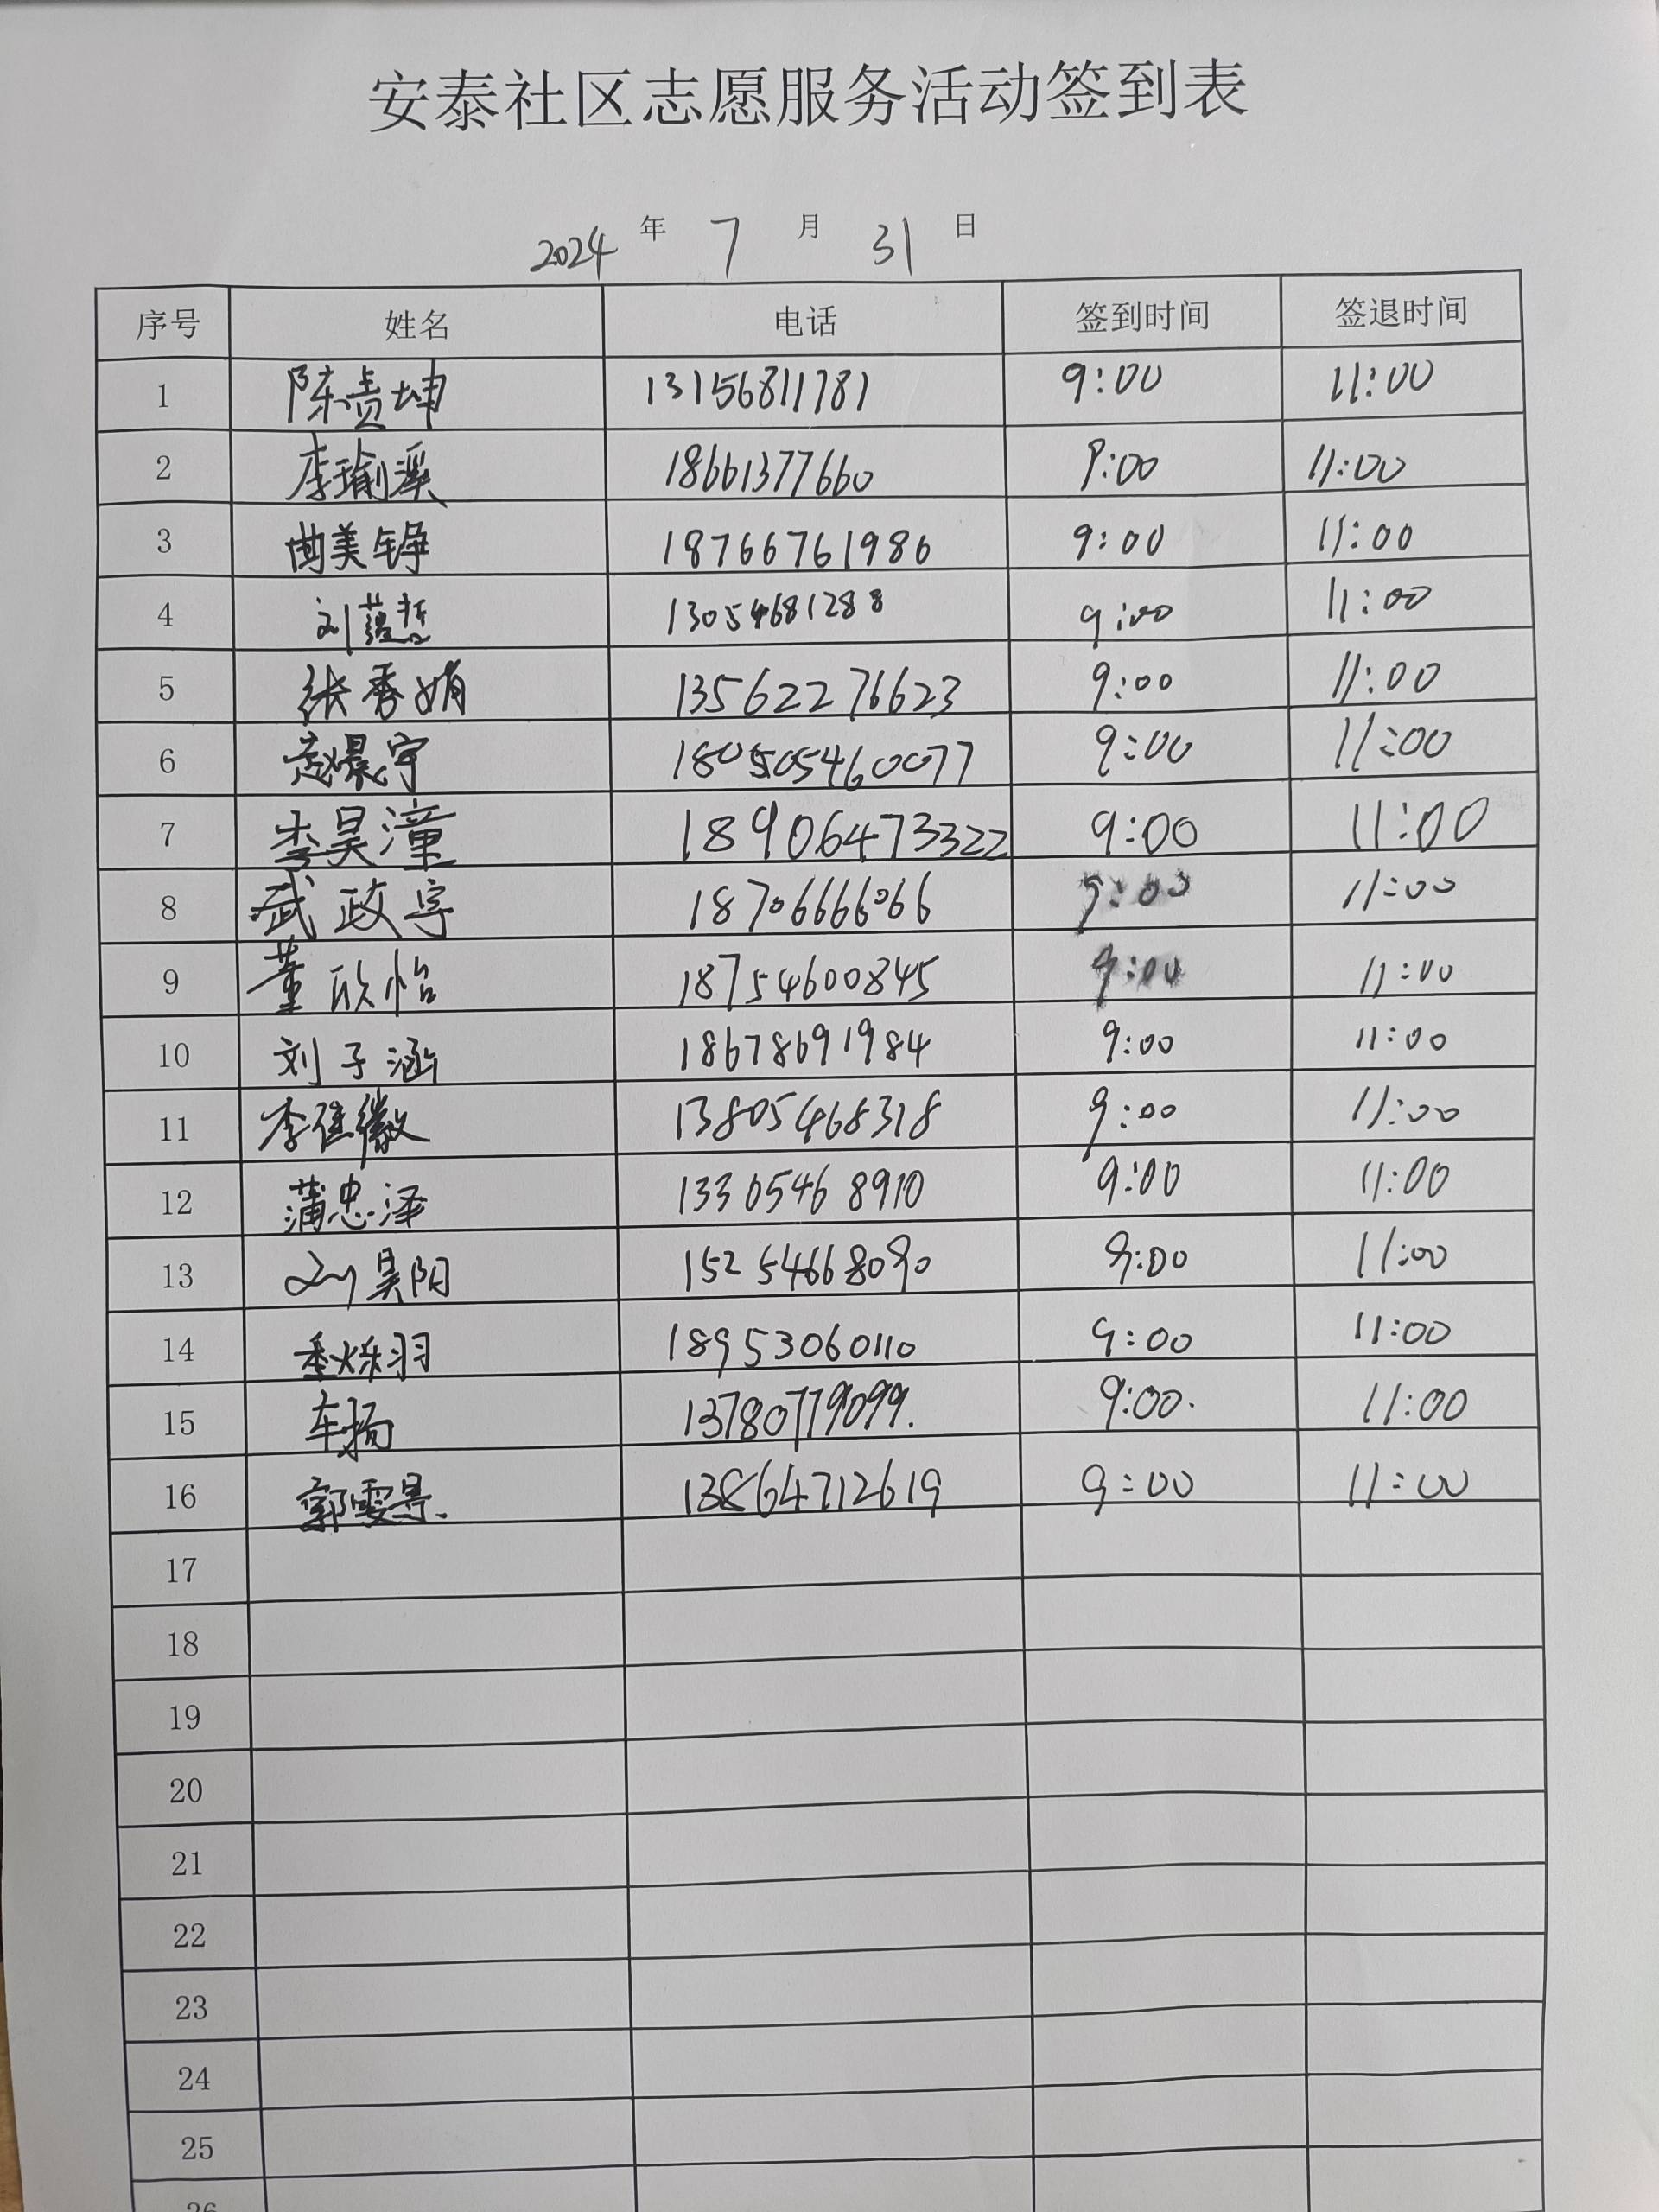 安泰社区志愿服务活动签到表
2024 年 7 月 31 日
序号 姓名 电话 签到时间 签退时间
1 陈贵坤 13156811781 9:00 11:00
2 李瑜溪 18661377660 9:00 11:00
3 曲美铮 18766761986 9:00 11:00
4 刘蕴哲 13054681288 9:00 11:00
5 张秀娟 13562276623 9:00 11:00
6 赵晨宇 180505460077 9:00 11:00
7 李昊潼 18906473322 9:00 11:00
8 武政宇 18706666066 9:00 11:00
9 董欣怡 18754600845 9:00 11:00
10 刘子涵 18678691984 9:00 11:00
11 李佳徽 13805468318 9:00 11:00
12 蒲忠泽 13305468910 9:00 11:00
13 刘昊阳 15254668090 9:00 11:00
14 18953060110 9:00 11:00
15 车扬 13780779099. 9:00. 11:00
16 郭雯 13864712619 9:00 11:00
17
18
19
20
21
22
23
24
25
26